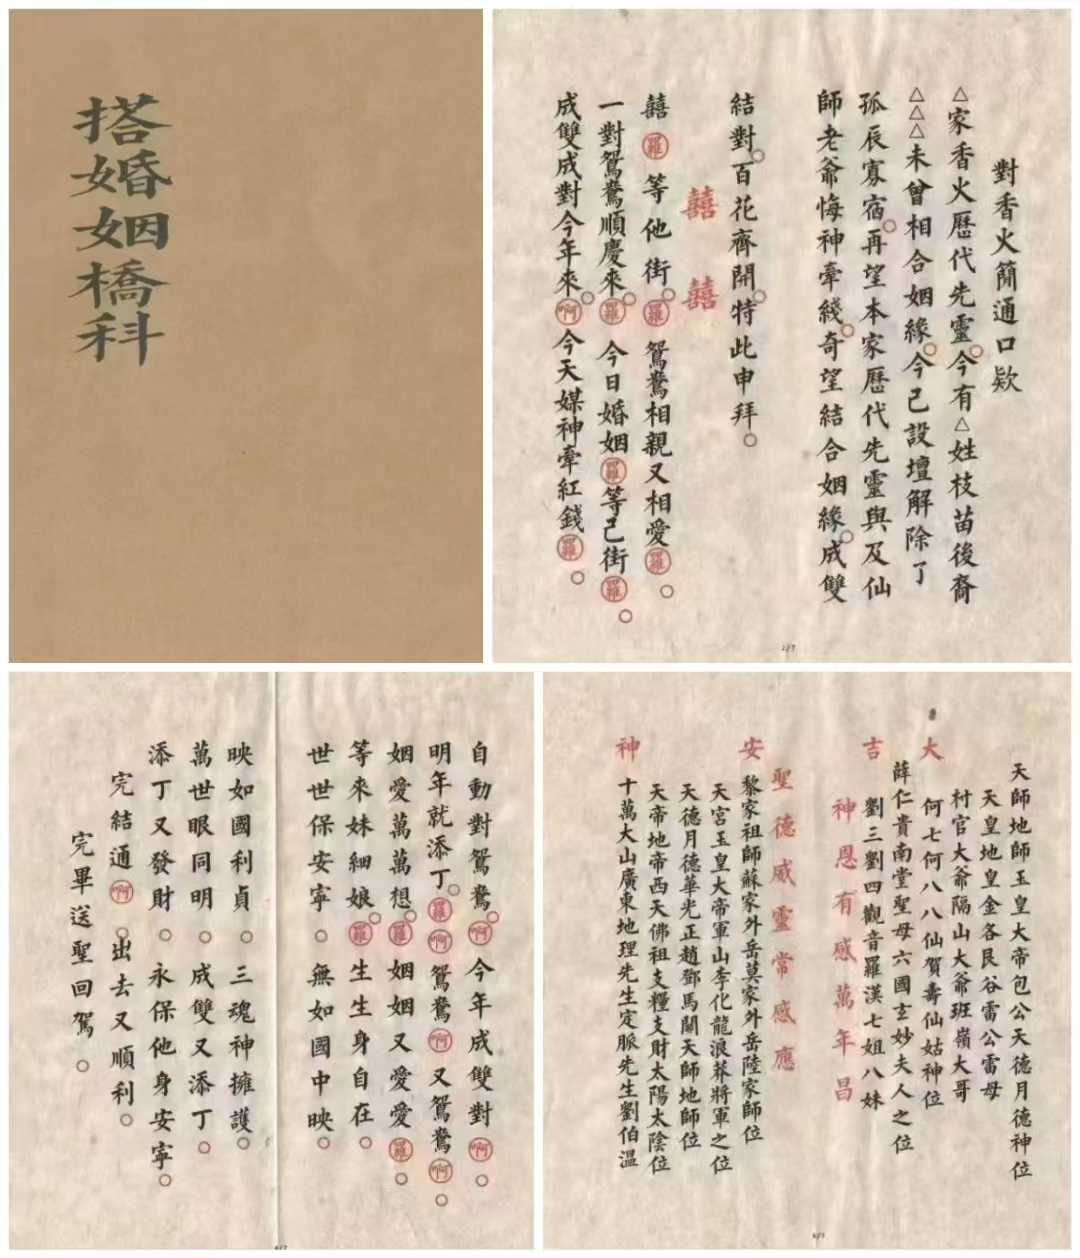 搭婚姻橋科
對香火簡通口欵
△家香火歷代先靈。今有△姓枝苗後裔
△△△未曾相合姻緣。今己設壇解除了
孤辰寡宿。再望本家歷代先靈與及仙
師老爺悔神牽綫。奇望結合姻緣。成雙
結對。百花齊開。特此申拜。
囍 囍
囍羅等他街。羅鴛鴦相親又相愛羅。
一對鴛鴦順慶來。羅今日婚姻羅等己街羅。
成雙成對今年來。啊今天媒神牽紅錢羅。
自動對鴛鴦。啊今年成雙對啊。
明年就添丁。羅啊鴛鴦啊又鴛鴦啊。
姻愛萬萬想。羅姻姻又愛愛羅。
等來妹細娘。羅生生身自在。
世世保安寧。無如國中映。
映如國利貞。三魂神擁護。
萬世眼同明。成雙又添丁。
添丁又發財。永保他身安寧。
完結通啊。出去又順利。
完畢送聖回駕。
天師地師玉皇大帝包公天德月德神位
天皇地皇金各艮谷雷公雷母
村官大爺隔山大爺班嶺大哥
大 何七何八八仙賀壽仙姑神位
薛仁貴南堂聖母六國玄妙夫人之位
吉 劉三劉四觀音羅漢七姐八妹
神恩有感萬年昌
聖德威靈常感應
安 黎家祖師蘇家外岳莫家外岳陸家師位
天宮玉皇大帝軍山李化龍浪莽將軍之位
天德月德華光正趙鄧馬關天師地師位
天帝地帝西天佛祖支糧支財太陽太陰位
神 十萬大山廣東地理先生定脈先生劉伯溫